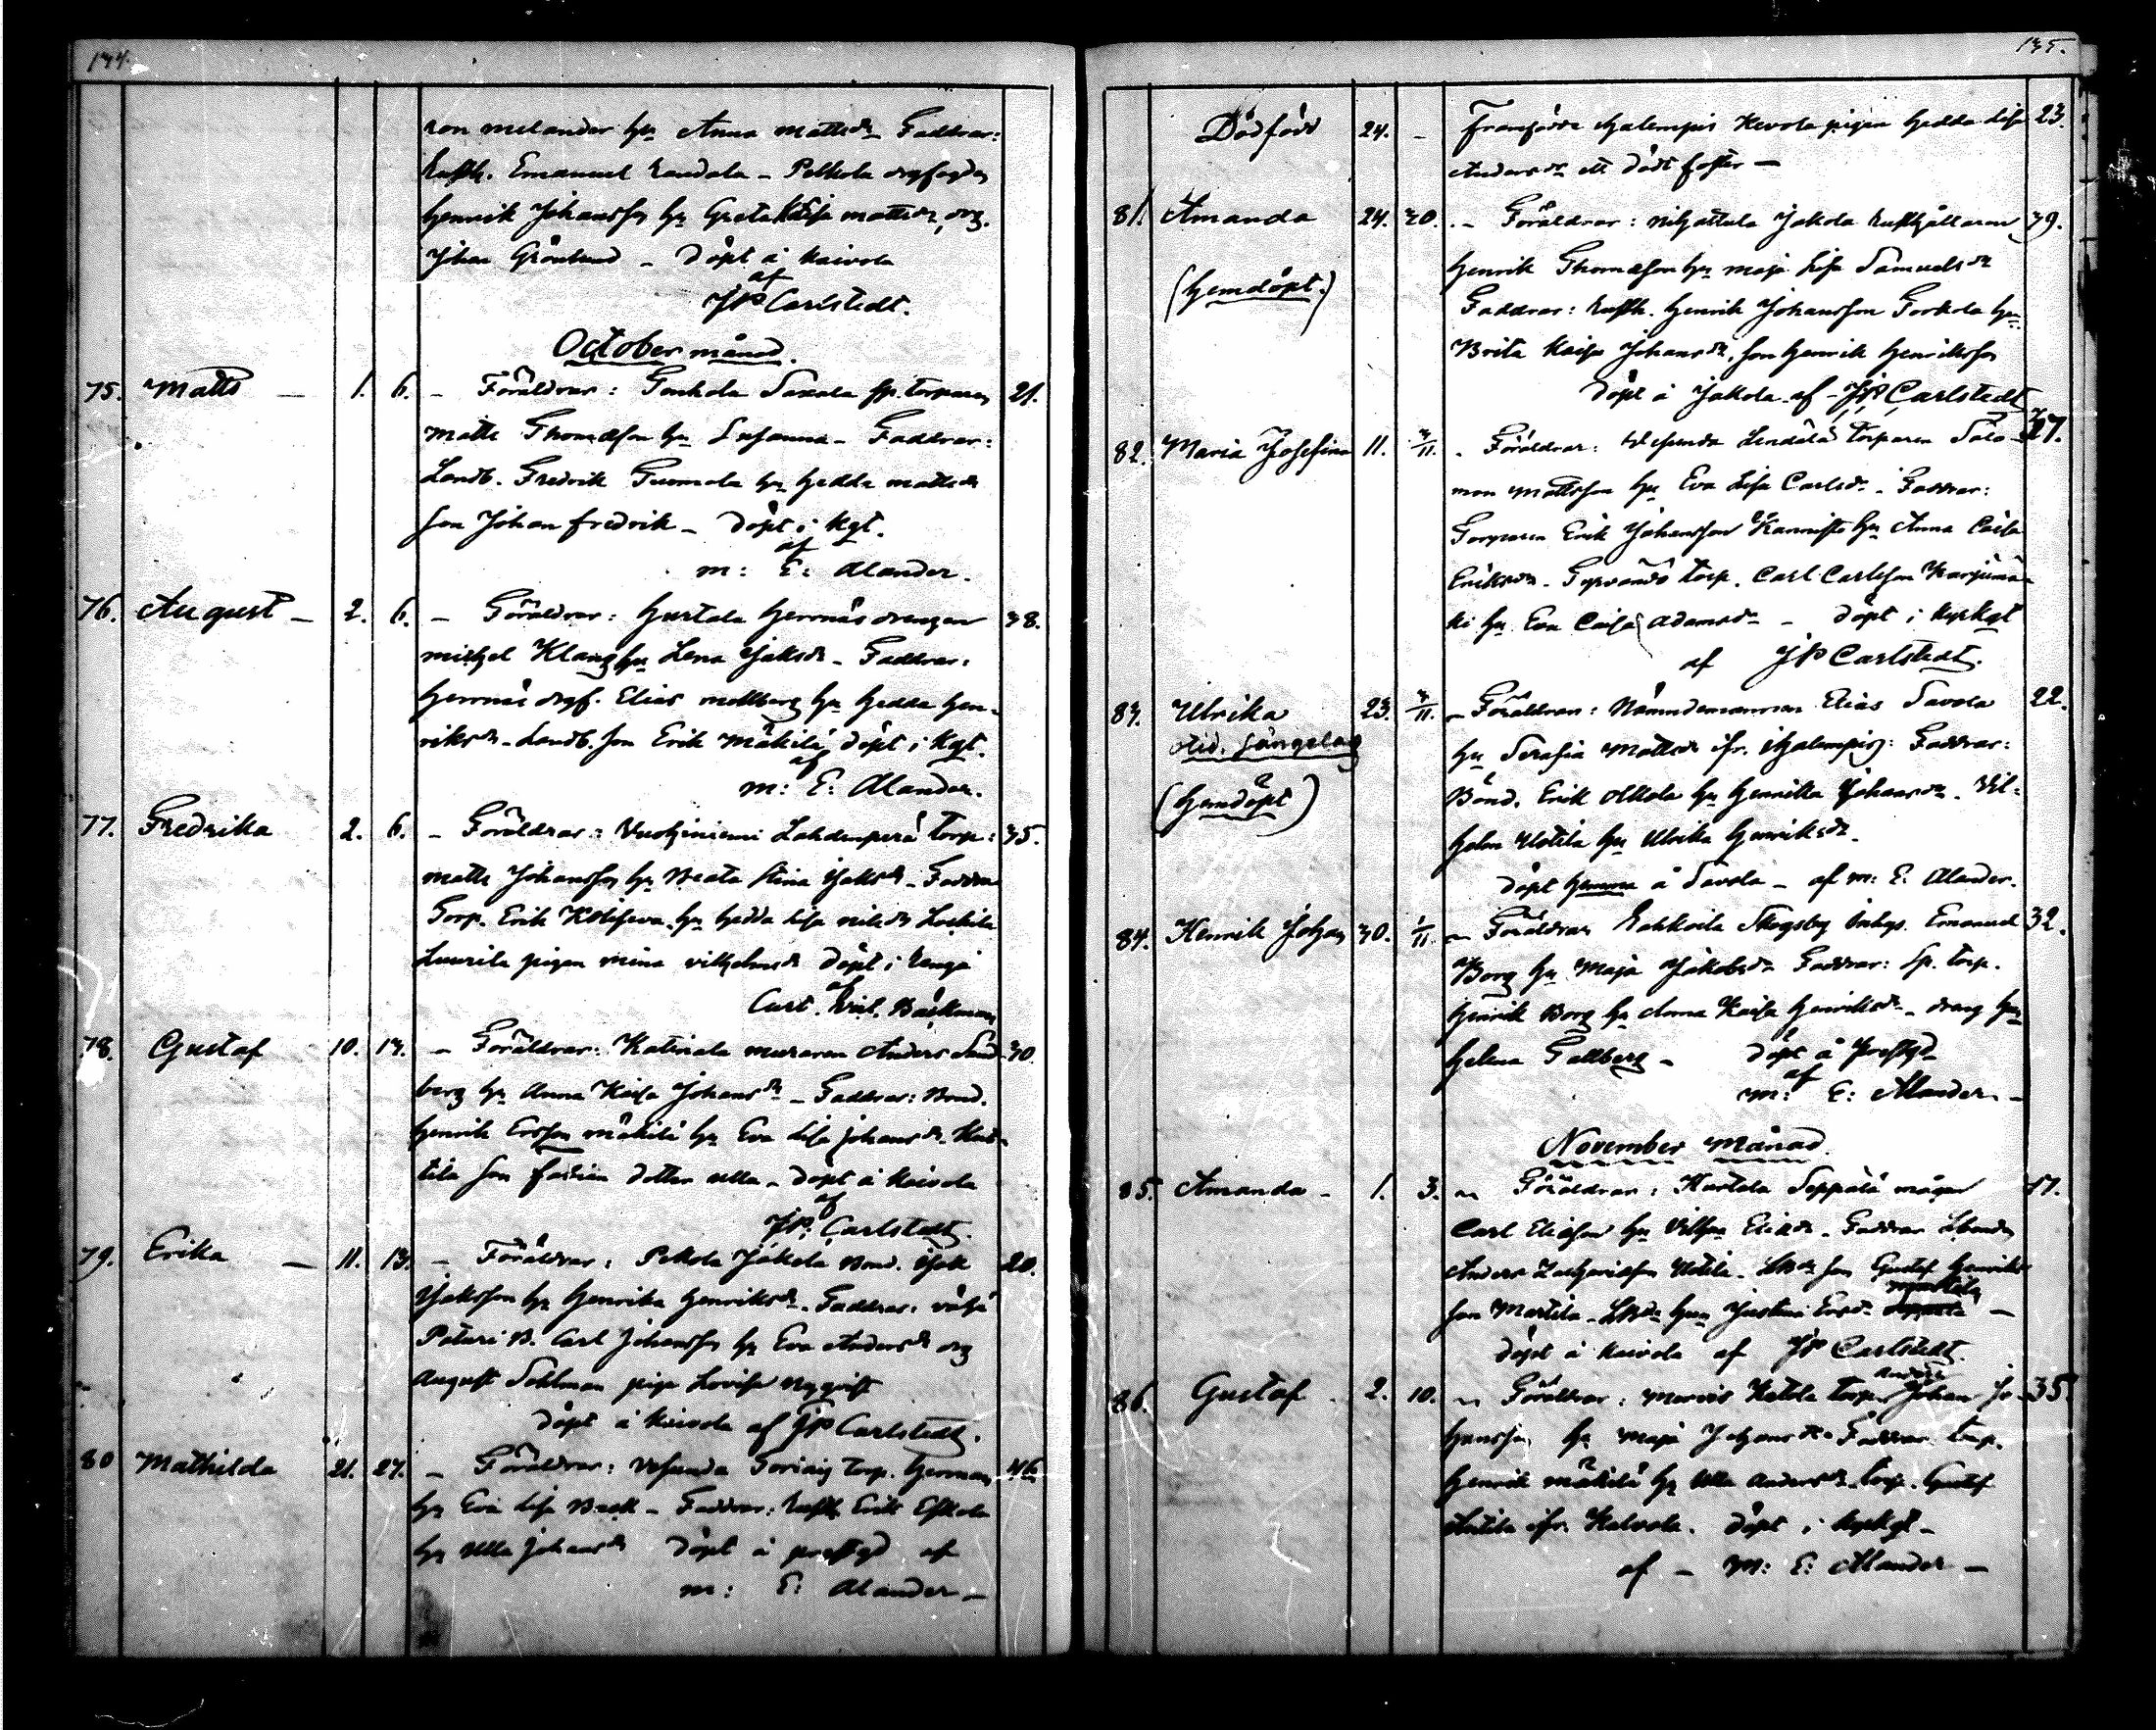 134.
ron melander hu Anna mattsdr Faddrar:
Rusth. Emanuel Randala - Pelkola drgfogden
Henrik Johansson hu Greta Kaisa mattsdr, drg.
Johan Grönlund - Döpt å Kaivola
af
JP Carlstedt.
October månad.
75. Matts - 1. 6. - Föräldrar: Saxala sp. torparen 21.
matts Thomasson hu Susanna - Faddrar:
Landb. Fredrik Tuomala hu Hedda mattsdr
son Johan fredrik - Döpt i Kgt.
af
m: E: Alander.
76. August - 2. 6. - Föräldrar: Hurtala Herrnäs drengen 38.
michel Klang hu Lena Jaksdr - Faddrar:
Herrnäs drgf. Elias mollberg hu Hedda Hen-
riksdr - Landb. son Erik Mäkilä, döpt i Kgt.
af
m: E: Alander.
77. Fredrika 2. 6. - Föräldrar: Vuohiniemi Lahdenperä Torp: 35.
matts Johansson hu Beata Stina Jaksdr - Faddrar
Torp. Erik hu Hedda Lisa
Luurila pigan mina vilhelmsdr Döpt i
af
Bäckman
78. Gustaf 10. 13. - Föräldrar: Katinala muraren Anders Sand- 30.
berg hu Anna Kaisa Johansdr - Faddrar: Bond.
Henrik Ersson mäkilä hu Eva Lisa johansdr
tila son fabian dotter ulla - döpt å Kaivola
af
JP. Carlstedt.
79. Erika - 11. 13. - Föräldrar: Pekola Jakola Bond. Isak 20.
Isaksson hu Henrika Henriksdr. Faddrar:
B. Carl Johansson hu Eva Andersdr drg
August Sahlman piga Lovisa Nyqvist
döpt å Kaivola af JP Carlstedt.
80 Mathilda 21. 27. - Föräldrar: Vesunda Torp. Herman 46.
hu Eva Lisa Back - Faddrar: Rusth. Erik Eskola
hu Ulla johansdr Döpt å prestgd af
m: E: Alander -
135.
Dödföds 24. - Framfödde Ihalempis Kevola pigan Hedda Lisa 23.
Andersdr ett dödt foster -
81. Amanda 24. 30. - Föräldrar: Nihattula Jakola Rusthållaren 39.
(hemdöpt.)
Henrik Thomasson hu maja Lisa Samuelsdr
Faddrar: Rusth. Henrik Johansson Torkola hu
Brita Kaisa Johansdr, son Henrik Henriksson
Döpt å Jakola af JP Carlstedt
82. Maria Josefina 11. 3/11. - Föräldrar: Vesunda Lendälä torparen Salo- 37.
mon Mattsson hu Eva Lisa Carlsdr - Faddrar:
Torparen Erik Johansson Kannisto hu Anna Caisa
Eriksdr - torp. Carl Carlsson Harjumä-
ki hu Eva Caisa Adamsdr - döpt i kyrkgt
af JP Carlstedt.
83. Ulrika 23. 3/11. - Föräldrar: Nämndemannen Elias Savola 22.
(hemdöpt)
hu Serafia Mattsdr ifr. Ihalempis: Faddrar:
Bönd. Erik Ollola hu Henrika Johansdr. Vil-
helm Uotila hu Ulrika Henriksdr -
Döpt hemma å Savola - af m: E: Alander.
84. Henrik Johan 30. 1/11. - Föräldrar Skogsby Inhys. Emanuel 32.
Borg hu Maja Jakobsdr Faddrar: Sp. torp.
Henrik Borg hu Anna Kaisa Henriksdr - dräng hu
Helena Tallberg - döpt å Prestgd
af
m: E: Alander. -
November Månad.
85. Amanda - 1. 3. - Föräldrar: Hurtala Seppälä mågen
Carl Eliasson hu Vilhma Eliasdr. Faddrar Lbonden
Anders Zachariasson Uotila - Lbds son Gustaf Henriks-
son Martila - Lbds hu Justina Ersdr Martila -
döpt å Kaivola af JP Carlstedt.
86. Gustaf - 2. 10. - Föräldrar: Mervis Ketola torpn Johan Anders Jo- 35.
hansson hu Maja Johansdr Faddrar torp.
Henrik mäkilä hu Ulla Andersdr. torp. Gustaf
ifr. Kalvola. döpt i kyrkgt -
af - m: E: Alander -